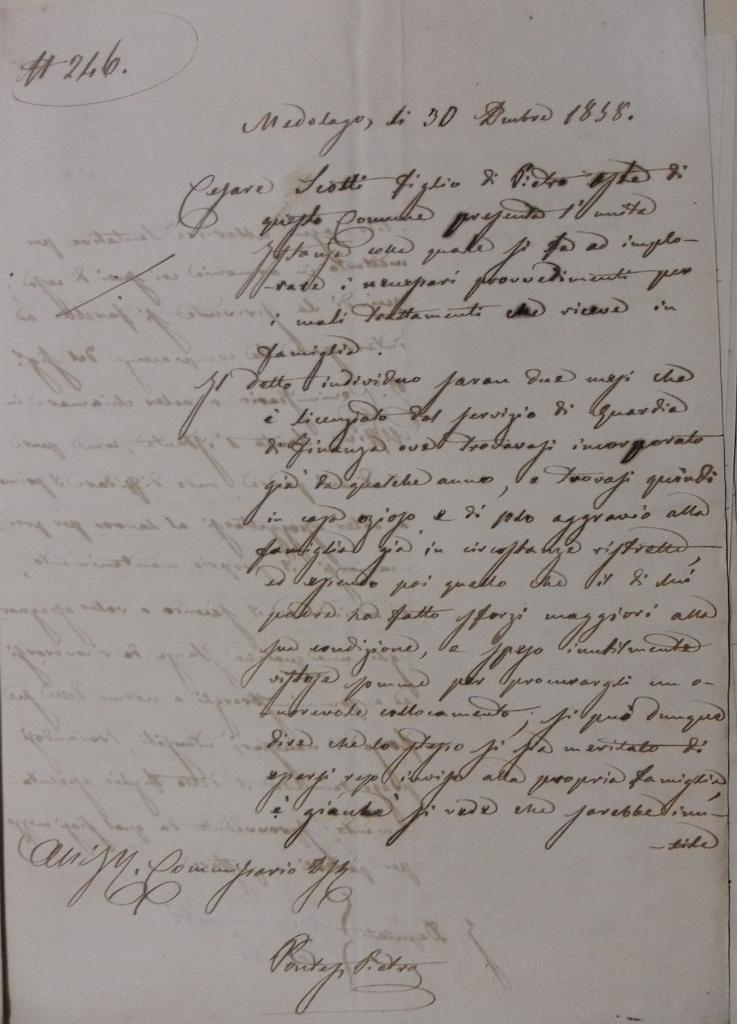 # 246.
Medolago, di 30 Dmbre 1858.
Cesare Scotti figlio di Pietro oste di
questo Comune presenta l'unita
Istanza colla quale si fa ad implo-
rare i necessari provvedimenti per
i mali trattamenti che riceve in
famiglia.
Il detto individuo saran due mesi che
è licenziato dal servizio di Guardia
di Finanza ove trovavasi incorporato
già da qualche anno, e trovasi quindi
in casa ozioso e di solo aggravio alla
famiglia già in circostanze ristrette,
ed essendo poi quello che il di lui
padre ha fatto sforzi maggiori alla
sua condizione, e speso inutilmente
vistose somme per procurargli un o-
norevole collocamento; si può dunque
dire che lo stesso si ha meritato di
essersi reso inviso alla propria famiglia,
e giacché si vede che sarebbe inu-
-tile
Commissario
Pietro